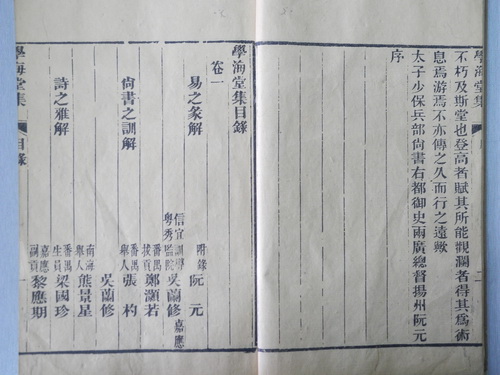 學海堂集
二
不朽及斯堂也登高者賦其所能觀瀾者得其為術
息焉游焉不亦傳之久而行之遠歟
太子少保兵部尚書右都御史兩廣總督揚州阮元
序
學海堂集目錄
卷一
易之彖解 附錄 阮元
信宜訓導 粵秀監院 吳蘭修 嘉應
番禺拔貢 鄭灝若
尚書之訓解 番禺舉人 張杓
吳蘭修
南海舉人 熊景星
詩之雅解 番禺生員 梁國珍
嘉應副貢 黎應期
學海堂集 目錄 一